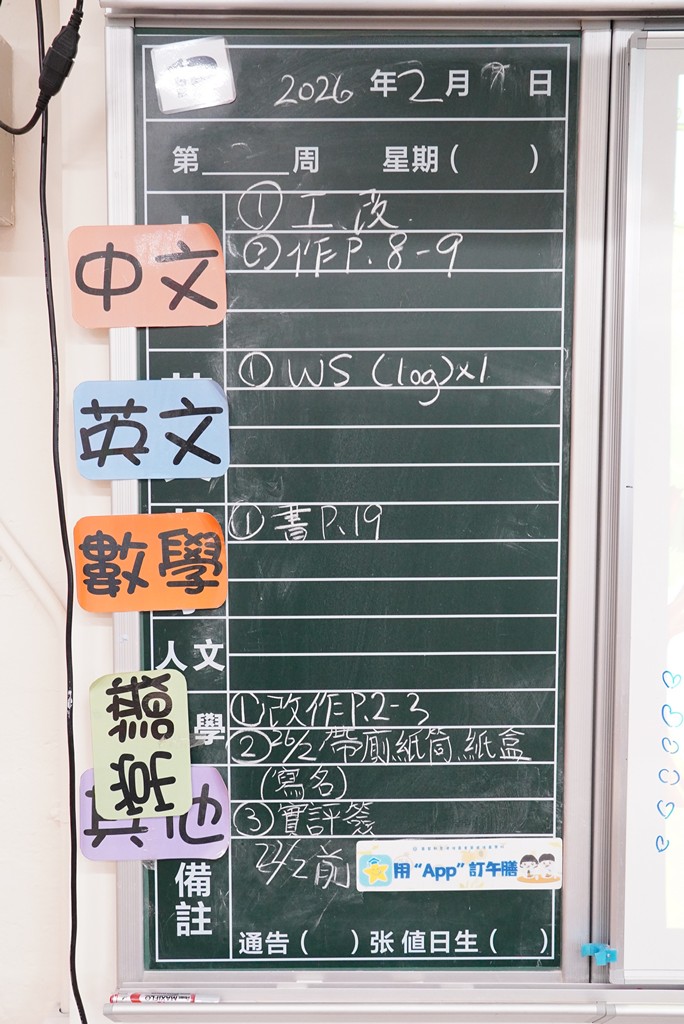 2026 年 2 月 日
第 周 星期( )
中文
① 工.改.
② 作P.8-9
英文
① WS (log)x1
數學
① 書P.19
人文
學
常識
其他
① 改作P.2-3
② 26/2帶廁紙筒.紙盒
(寫名)
③ 實評簽
前
用“App”訂午膳
備註
通告( )张 值日生( )